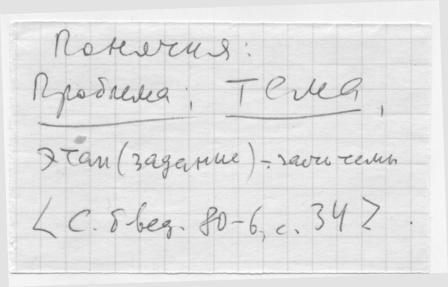 Понятия:
Проблема; Тема,
этап (задание) - часть темы
< С. б-вед. 80-6, с. 34 > .